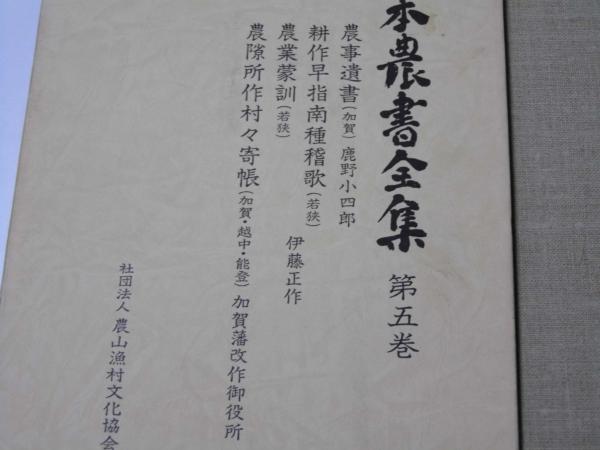 本農書全集 第五巻
農事遺書(加賀) 鹿野小四郎
耕作早指南種稽歌(若狭)
農業蒙訓(若狭) 伊藤正作
農隙所作村々寄帳(加賀・越中・能登) 加賀藩改作御役所
社団法人 農山漁村文化協会